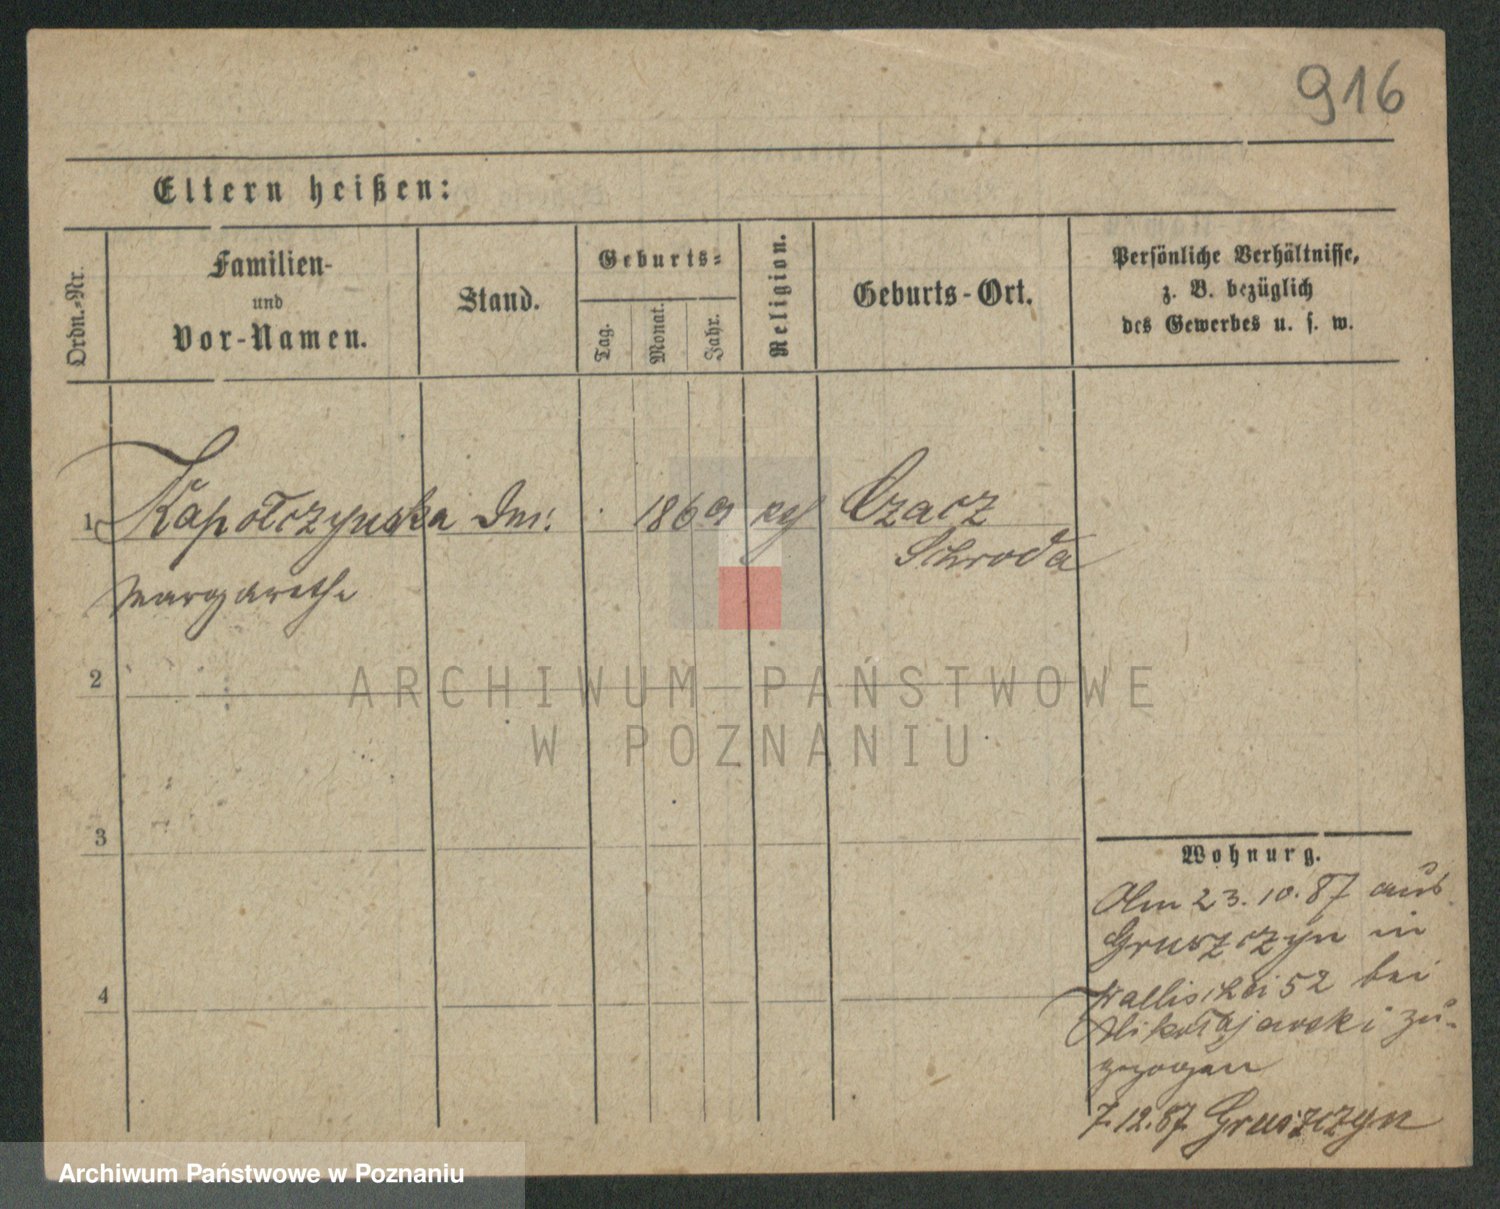 916
Eltern heißen:
Ordn.-Nr.
Familien-
und
Vor-Namen.
Stand.
Geburts-
Tag.
Monat.
Jahr.
Religion.
Geburts-Ort.
Persönliche Verhältnisse,
z. B. bezüglich
des Gewerbes u. s. w.
1 Kapołczynska 1869 Czacz
Schroda
Margarethe
2
ARCHIWUM PAŃSTWOWE
W POZNANIU
3
Wohnurg.
Am 23.10.87 aus
Gruszczyn in
4
Wallischei 52 bei
Mikołajewski zu-
gezogen
7.12.87 Gruszczyn
Archiwum Państwowe w Poznaniu